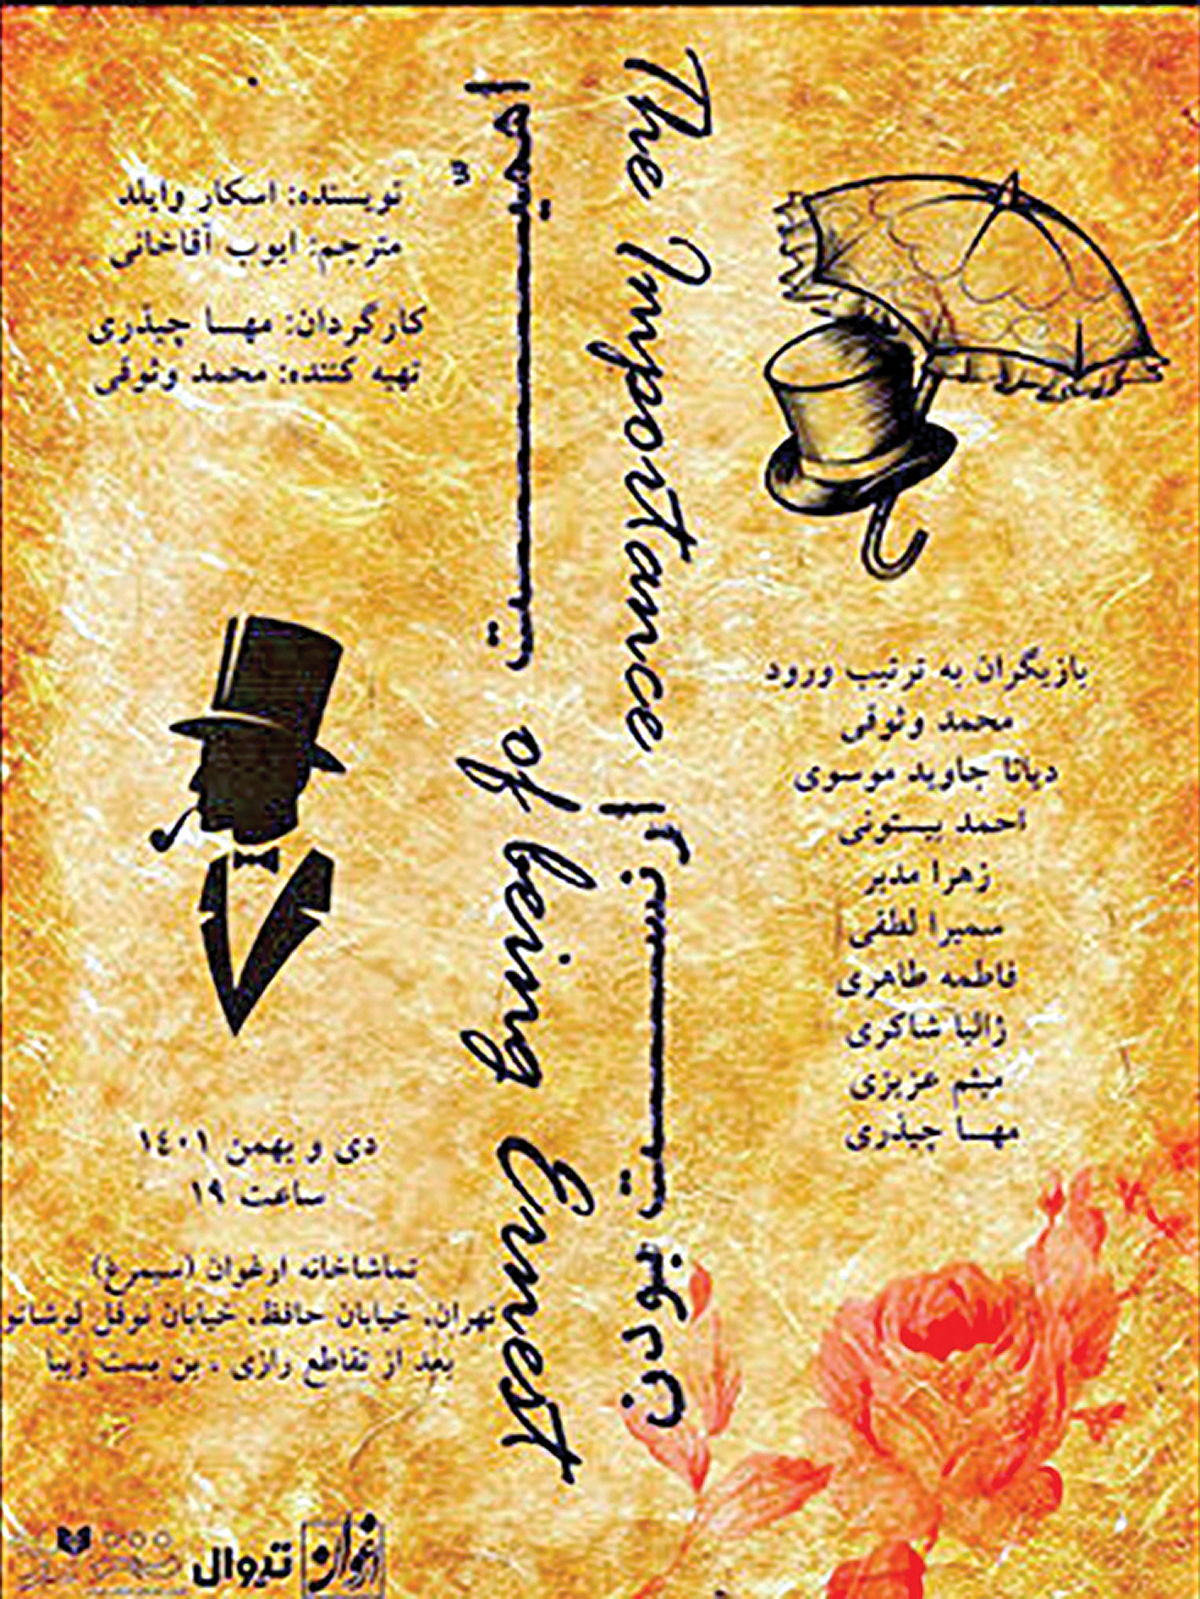 The Importance
of being Ernest
اهمیّت
ارنست بودن
نویسنده: اسکار وایلد
مترجم: ایوب آقاخانی
کارگردان: مهسا چیذری
تهیه کننده: محمد وثوقی
بازیگران به ترتیب ورود
محمد وثوقی
دیانا جاوید موسوی
احمد بیستونی
زهرا مدبر
سمیرا لطفی
فاطمه طاهری
ژالیا شاکری
میثم عزیزی
مهسا چیذری
دی و بهمن ۱۴۰۱
ساعت ۱۹
تماشاخانه ارغوان (سیمرغ)
تهران، خیابان حافظ، خیابان نوفل لوشاتو
بعد از تقاطع رازی ، بن بست زیبا
ارغوان
تیوال